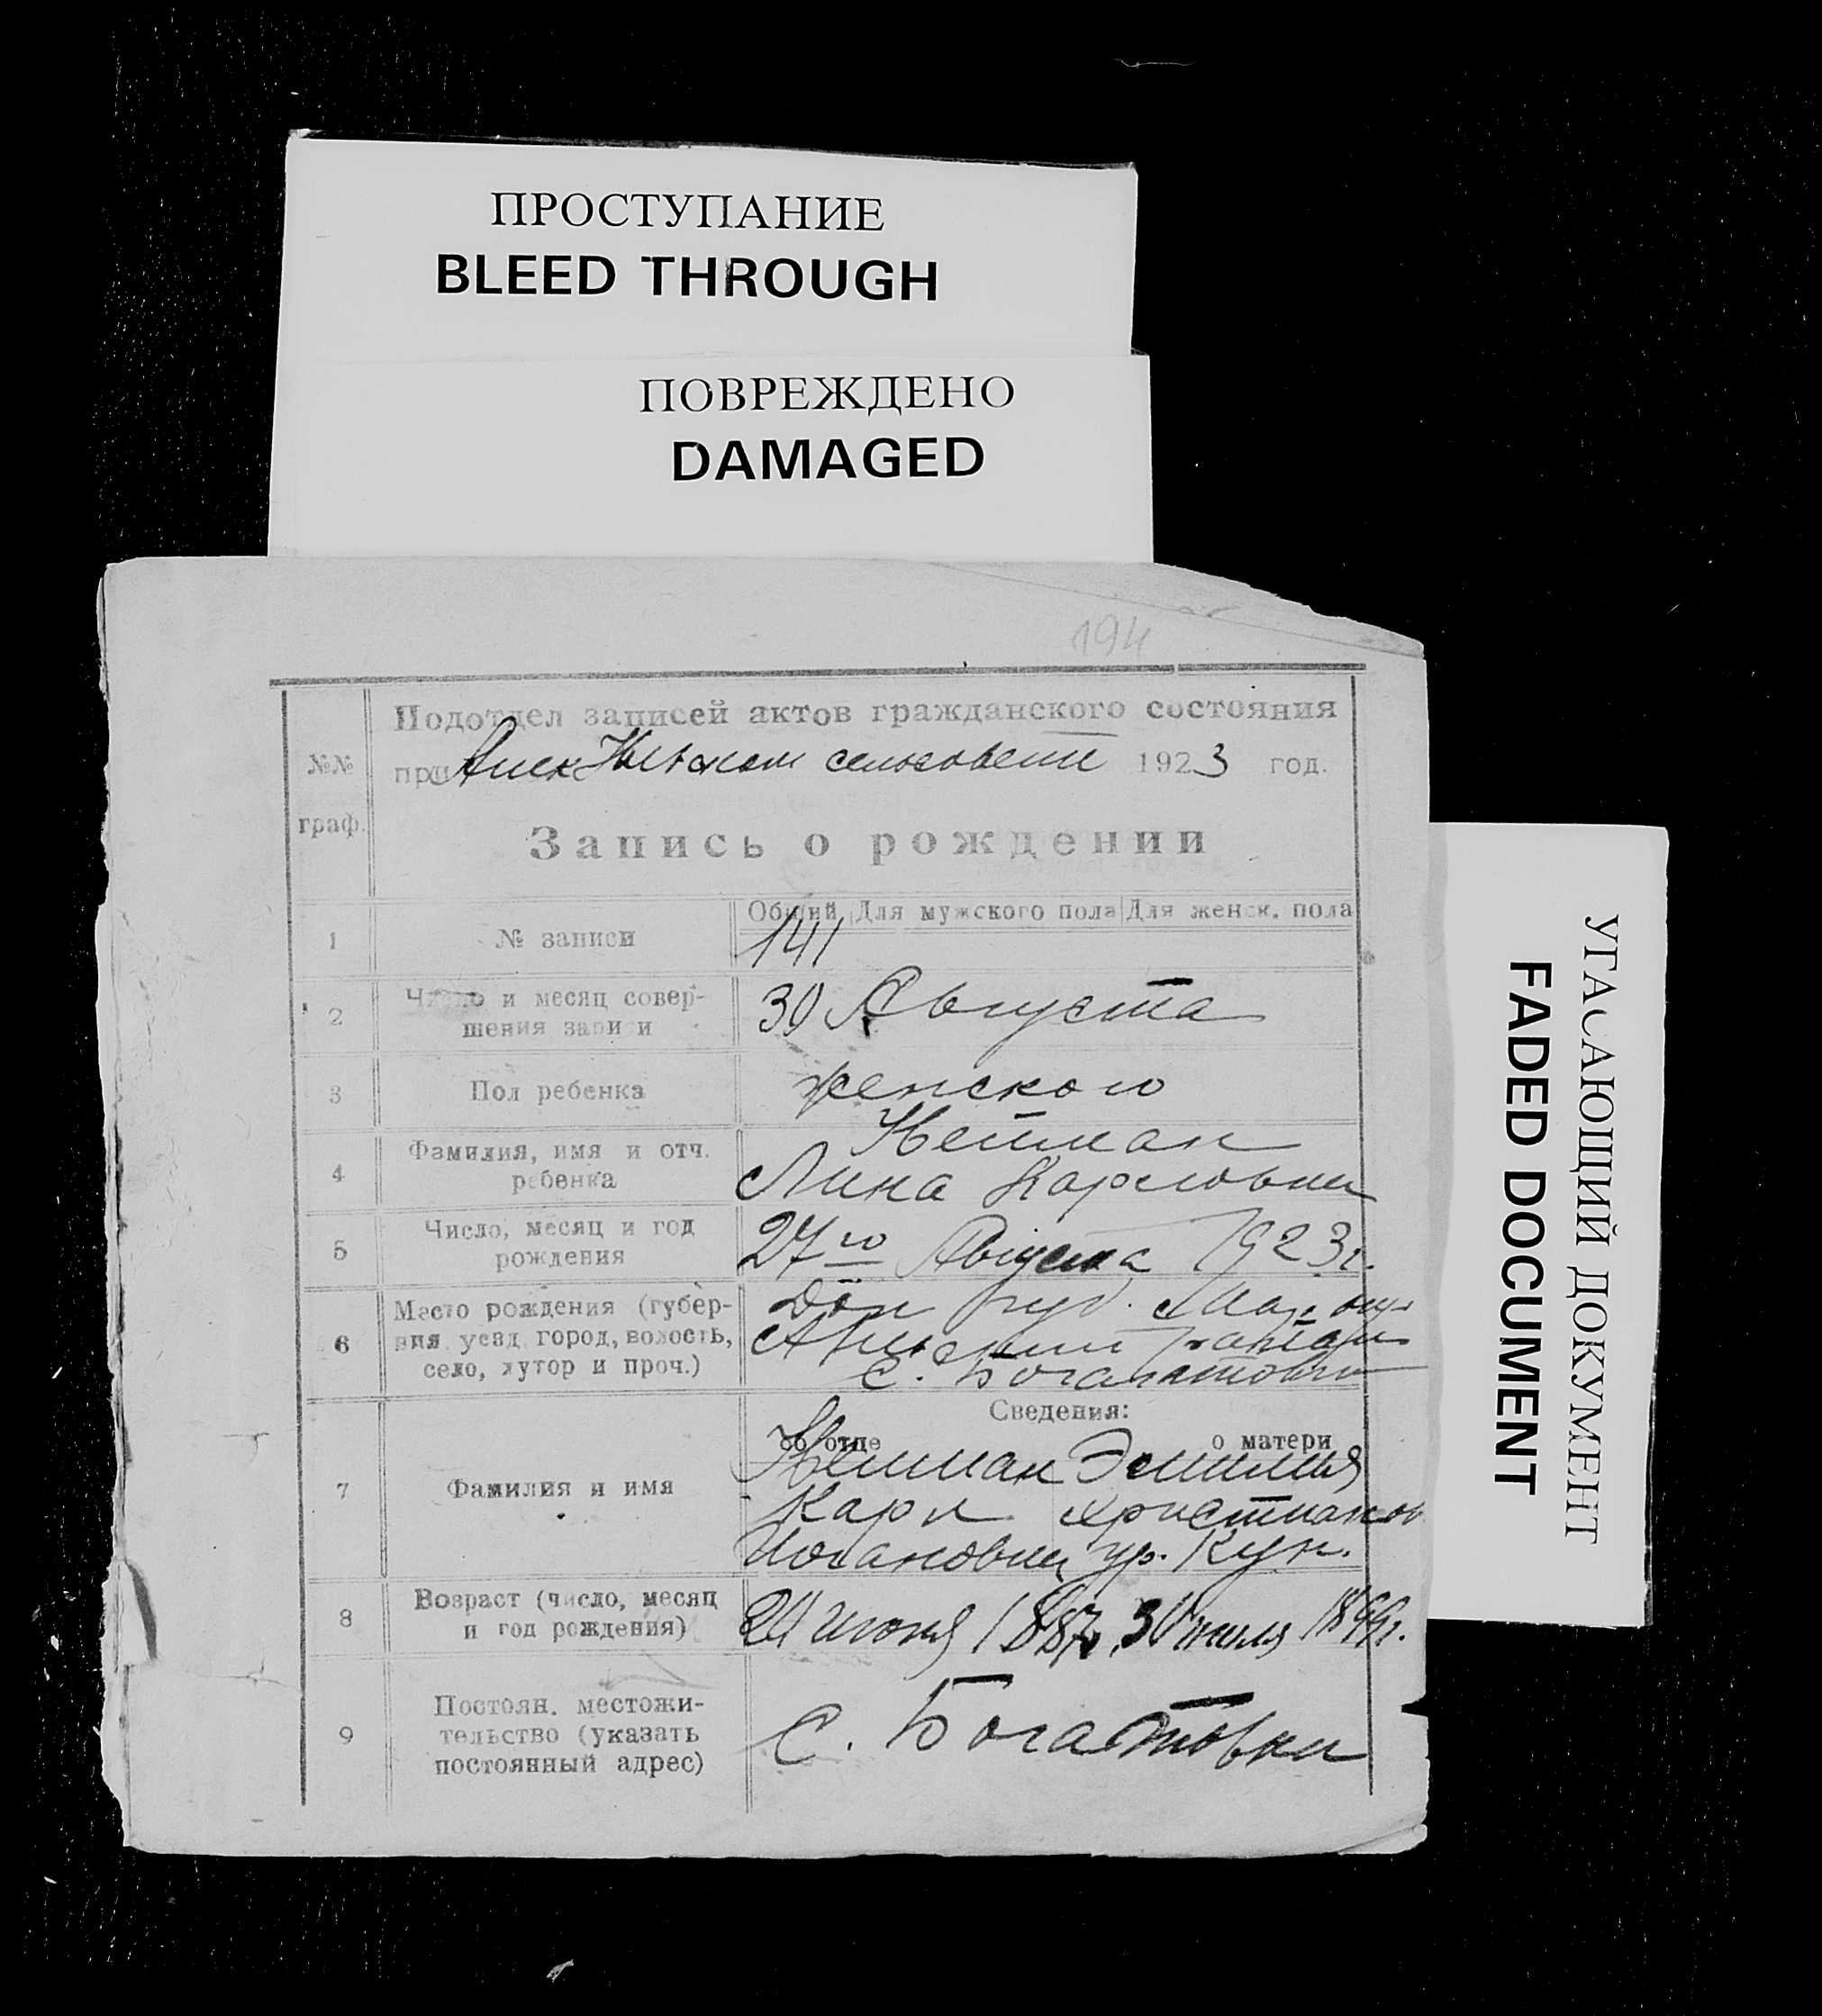 ПРОСТУПАНИЕ
BLEED THROUGH
ПОВРЕЖДЕНО
DAMAGED
194
Подотдел записей актов гражданского состояния
№№ при сельсовете 1923 год.
граф.
Запись о рождении
Общий Для мужского пола Для женск. пола
1 № записи 141
2 Число и месяц совершения записи 30 Августа
3 Пол ребенка женского
Нейман
4 Фамилия, имя и отч. ребенка Лина Карловна
5 Число, месяц и год рождения 27го Августа 1923г.
6 Место рождения (губерния, уезд, город, волость, село, хутор и проч.) Дон губ.
с.
Сведения:
об отце о матери
7 Фамилия и имя Нейман Эмилия
Карл Христианов
ур. Кун.
8 Возраст (число, месяц и год рождения) июня 1887, июля
9 Постоян. местожительство (указать постоянный адрес) С. Богатовка
УГАСАЮЩИЙ ДОКУМЕНТ
FADED DOCUMENT